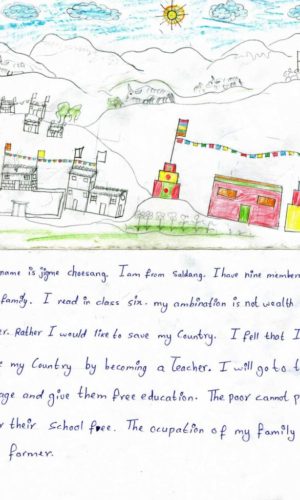 name is jigme choesang. I am from saldang. I have nine member
family. I read in class six. my ambination is not wealth
er. Rather I would like to save my Country. I fell that I
e my Country by becoming a Teacher. I will go to t
age and give them free education. The poor cannot p
r their School free. The ocupation of my family
farmer.